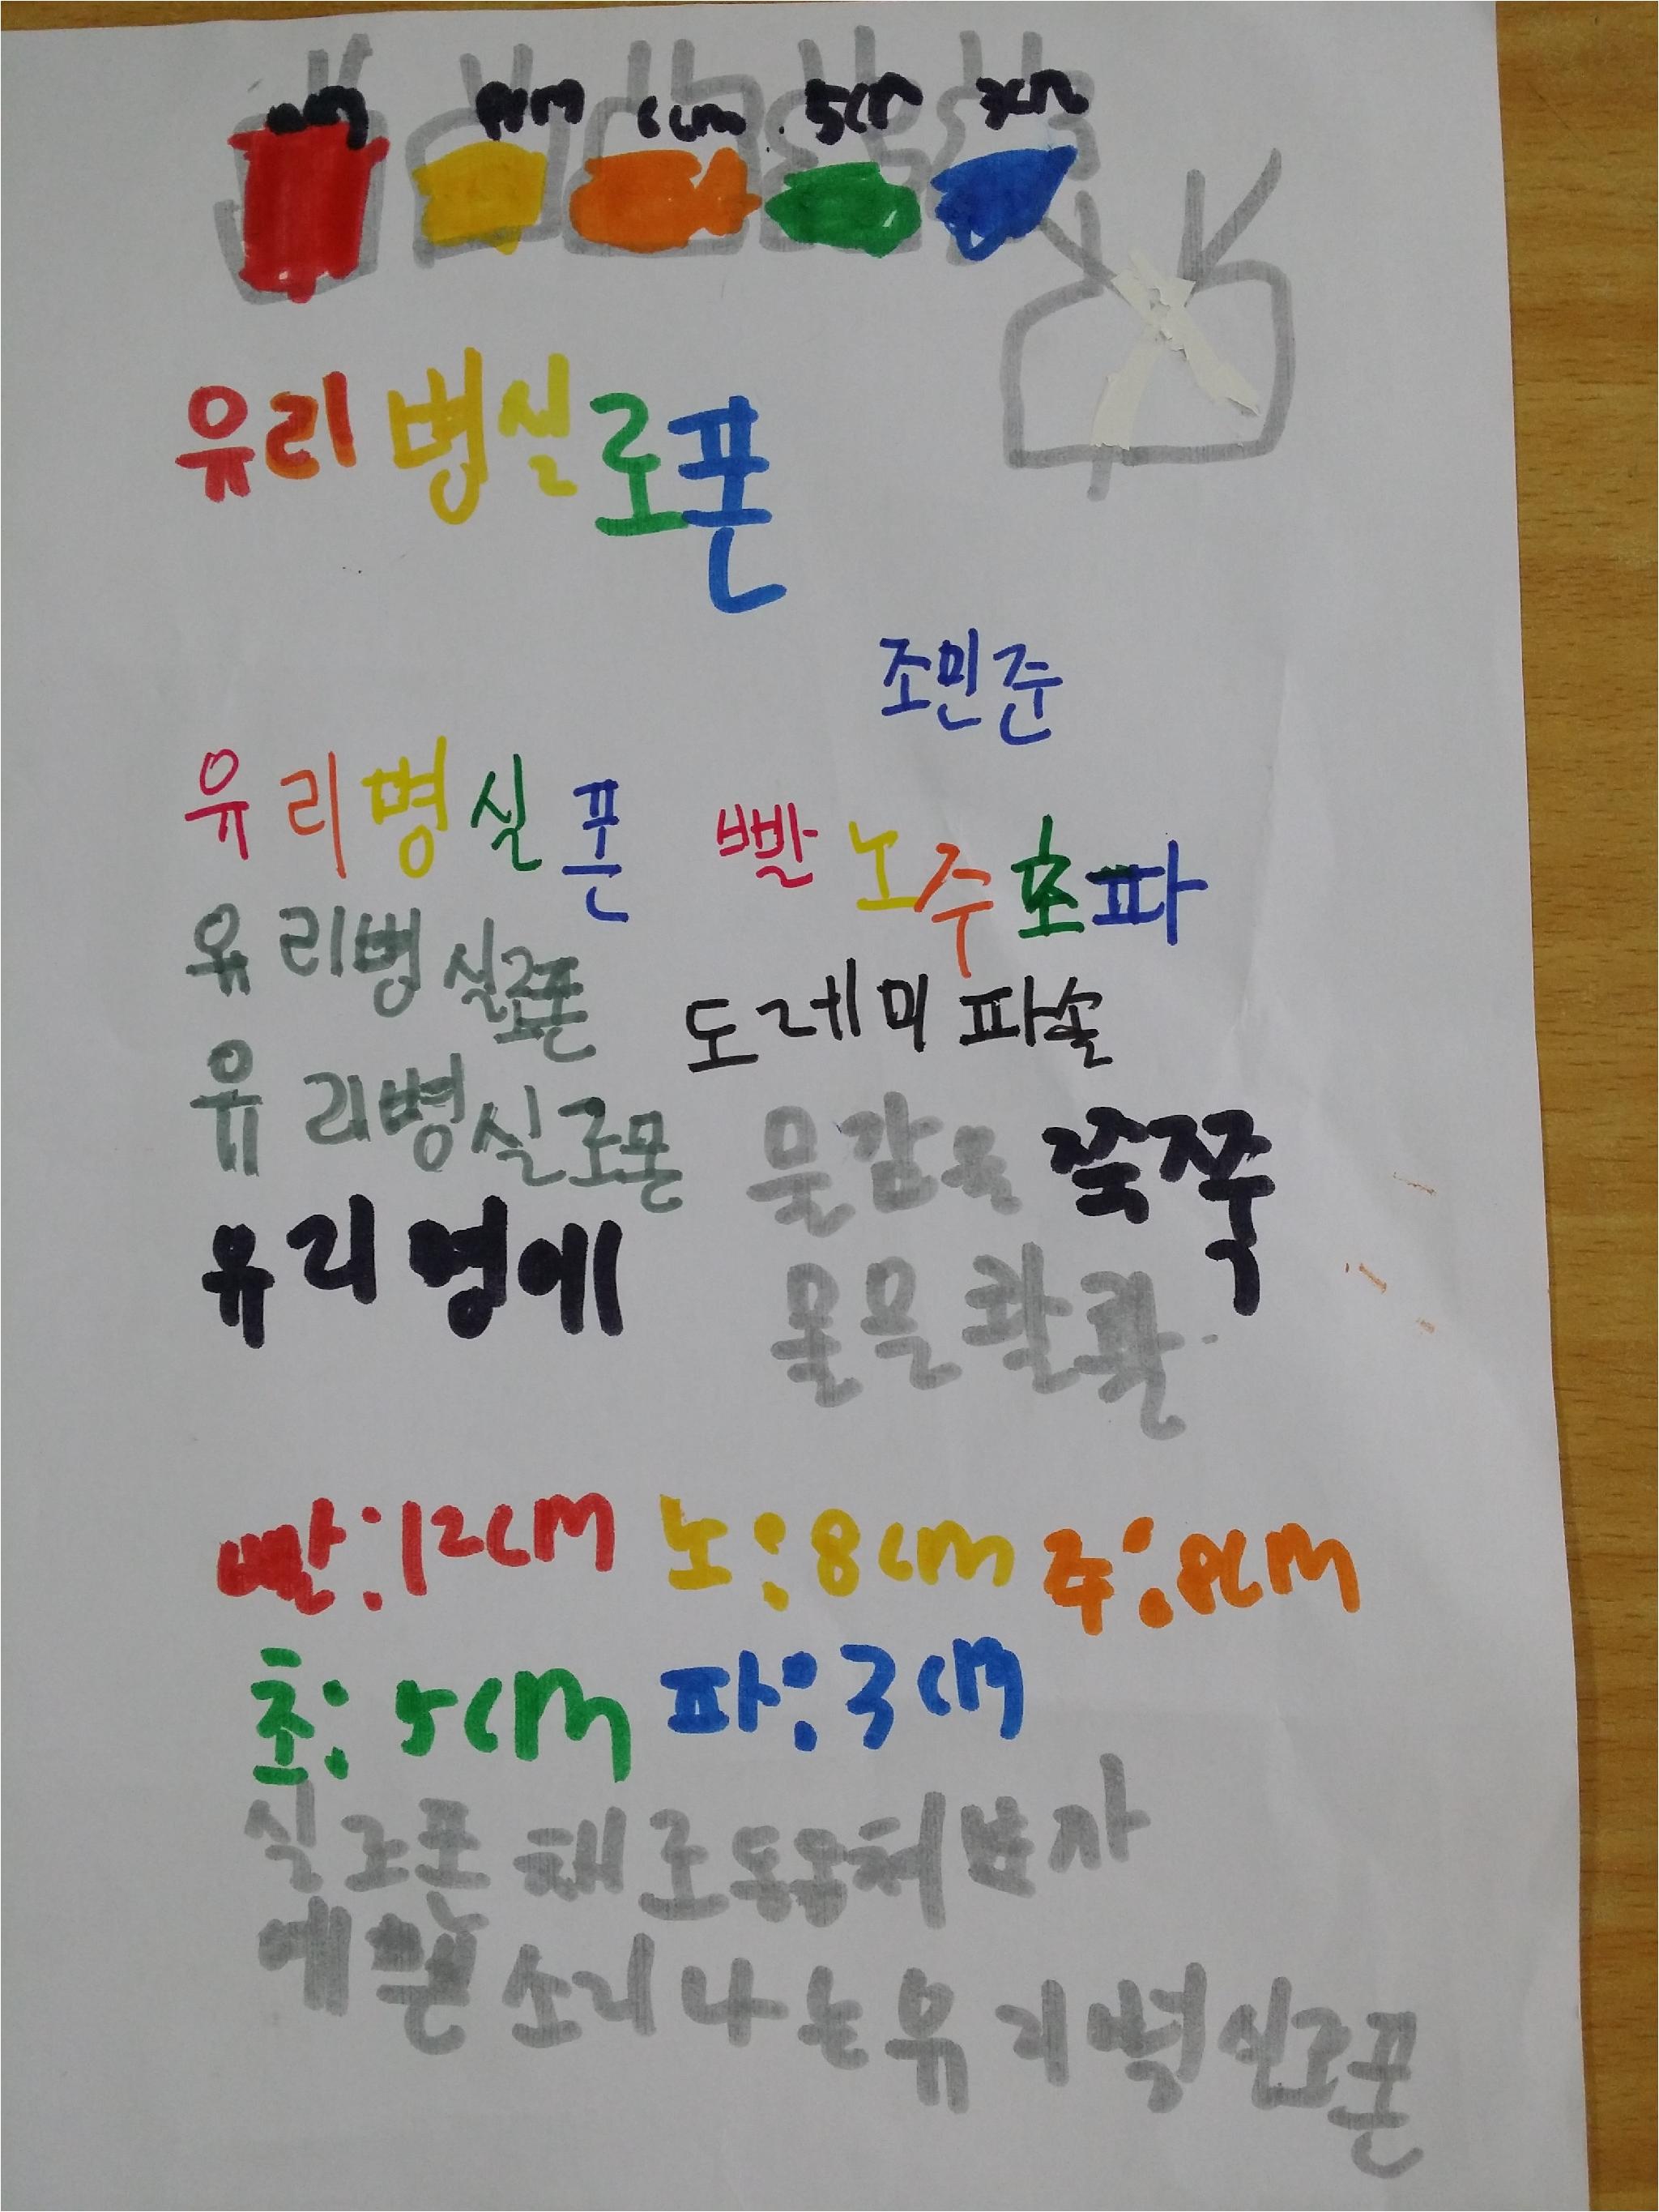 5cm 3cm
유리병실로폰
조민준
유리병실폰
빨노주초파
유리병실로폰
도레미파솔
유리병실로폰
물감을 쭉쭉
유리병에
물을 콸콸
빨:12cm 노:8cm 주:8cm
초:5cm 파:3cm
실로폰 채로 동동 쳐보자
예쁜 소리 나는 유리병실로폰